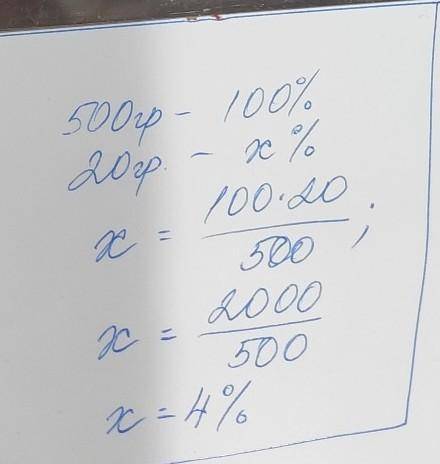 500гр - 100%
20гр. - х%
х = 100·20 / 500 ;
х = 2000 / 500
х = 4%